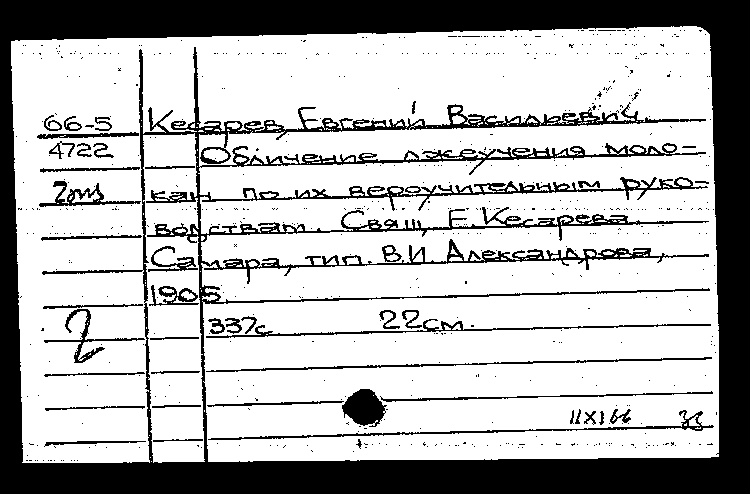 66-5 Кесарев, Евгений Васильевич.
4722 Обличение лжеучения моло=
кан по их вероучительным руко=
водствам. Свящ. Е. Кесарева.
Самара, тип. В.И. Александрова,
1905.
2 337с. 22см.
11 X 166